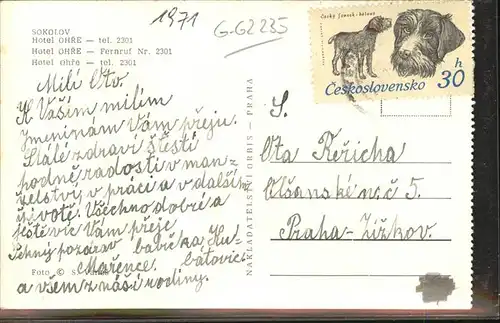 1971
G-G2235
SOKOLOV
Hotel OHŘE — tel. 2301
Hotel OHŘE — Fernruf Nr. 2301
Hotel Ohře — tel. 2301
Milí Oto.
K Vašim milím
Jmeninám Vám přeju.
Stálé zdraví štěstí
hodně radosti v man-
želství v práci a v dalším
životě. Všechno dobré a
ještě víc Vám přeje
Pěkný pozdrav babička
Mařence.
a všem z naší rodiny.
Foto ©
NAKLADATELSTVÍ ORBIS - PRAHA
Český fousek-
Československo 30 h
S.
Ota Keřicha
Olšanské n.č 5.
Praha-Žižkov.